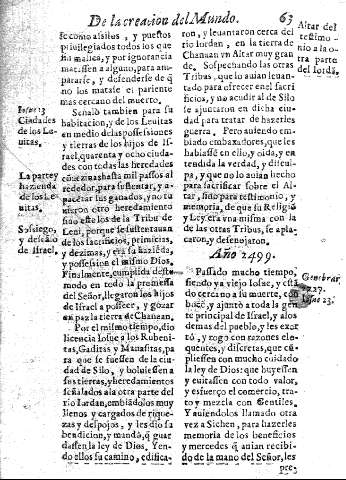 De la creacion del Mundo. 63
se como asilos, y puestos
priuilegiados todos los que
sin malicia, y por ignorancia
matassen a alguno, para am-
pararse, y defenderse de q
no los matasse el pariente
mas cercano del muerto.
Señalò tambien para su
habitacion, y de los Leuitas
en medio de las possessiones
y tierras de los hijos de Is-
rael, quarenta y ocho ciuda-
des con todas las heredades
hasta mil passos al
rededor, para sustentar, y a-
pacetar sus ganados, y no tu
uieron otro heredamiento
sino este los de la Tribu de
Leui, porque se sustentauan
de los sacrificios, primicias,
y dezimas, y era su hazieda,
y possession el mismo Dios.
Finalmente, cumplida deste
modo en todo la promessa
del Señor, llegaron los hijos
de Israel a posseer, y gozar
en paz la tierra de Chanaan.
Por el mismo tiempo, dio
licencia Iosue a los Rubeni-
tas, Gaditas y Manasitas, pa
ra que se fuessen de la ciu-
dad de Silo, y boluiessen a
sus tierras, y heredamientos
señalados a la otra parte del
rio Iordan, embiádolos muy
llenos y cargados de rique-
zas y despojos, y les dio su
bendicion, y mandò, q guar
dassen la ley de Dios. Yen-
do ellos su camino, edifica-
Iosue 13
Ciudades
de los Le-
uitas.
La parte y
hazienda
de los Le-
uitas.
Sossiego,
y descáso
de Israel.
ron, y leuantaron cerca del
rio Iordan, en la tierra de
Chanaan vn Altar muy gran
de. Sospechando las otras
Tribus, que lo auian leuan-
tado para ofrecer en el sacri
ficios, y no acudir al de Silo
se ajuntaron en dicha ciu-
dad para tratar de hazerles
guerra. Pero auiendo em-
biado embaxadores, que les
hablasse en ello, y oida, y en
tendida la verdad, y discul-
pa, y que no lo auian hecho
para sacrificar sobre el Al-
tar, sino para testimonio, y
memoria, de que su Religió
y Ley era vna misma con la
de las otras Tribus, se apla-
caron, y desenojaron.
Año 2499.
Passado mucho tiempo,
siendo ya viejo Iosue, y està
do cercano a su muerte, con
bocò, y ajuntò a toda la gen
te principal de Israel, y a los
demas del pueblo, y les exor
tò, y rogo con razones elo-
quentes, y discretas, que cú-
pliessen con mucho cuidado
la ley de Dios: que huyessen
y euitassen con todo valor,
y esfuerço el comercio, tra-
to y mezcla con Gentiles.
Y auiendolos llamado otra
vez a Sichen, para hazerles
memoria de los beneficios
y mercedes q auian recibi-
do de la mano del Señor, les
Altar del
testimo-
nio a la o-
tra parte
del Iordá.
Genebrar.
Iosue 23.